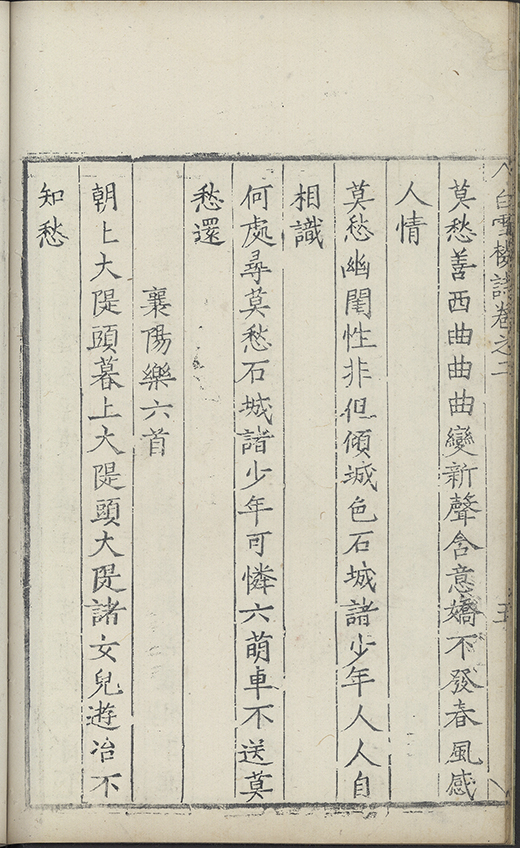 白雪樓詩卷之二
五
莫愁善西曲曲曲變新聲含意嬌不發春風感
人情
莫愁幽閨性非但傾城色石城諸少年人人自
相識
何處尋莫愁石城諸少年可憐六萌車不送莫
愁還
襄陽樂六首
朝上大隄頭暮上大隄頭大隄諸女兒遊冶不
知愁